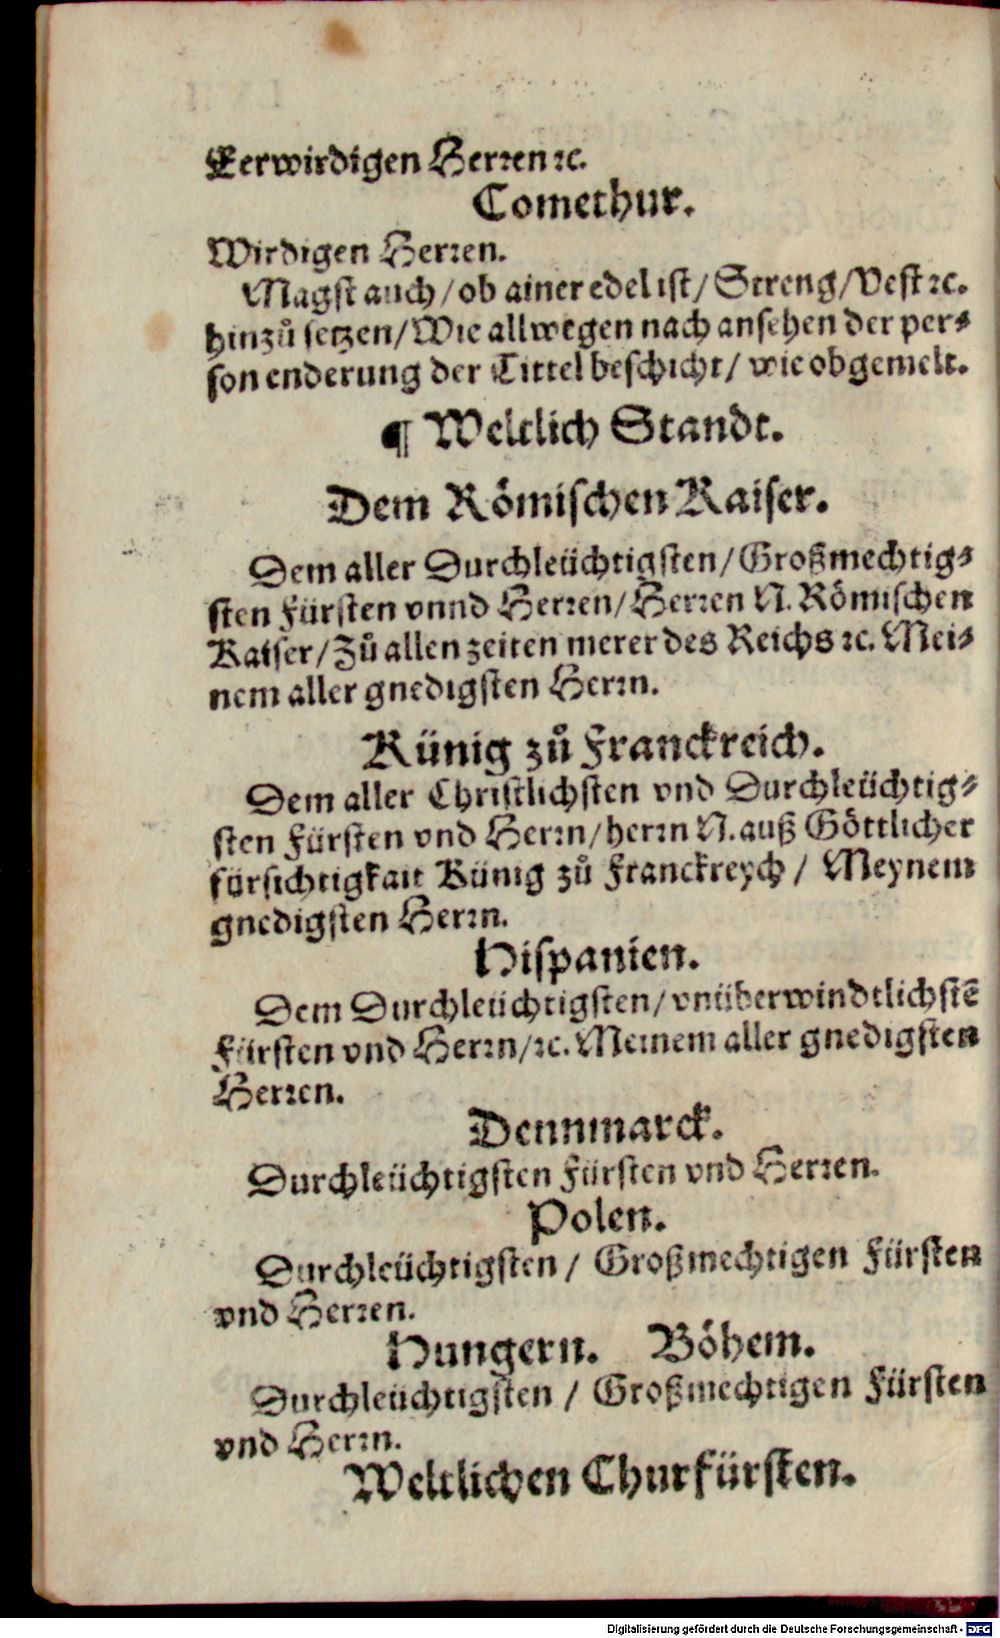 Eerwirdigen Herꝛen ꝛc.
Comethur.
Wirdigen Herꝛen.
Magst auch / ob ainer edel ist / Streng / Vest ꝛc.
hinzů setzen / Wie allwegen nach ansehen der per⸗
son enderung der Tittel beschicht / wie obgemelt.
¶ Weltlich Standt.
Dem Römischen Kaiser.
Dem aller Durchleüchtigsten / Großmechtig⸗
sten Fürsten vnnd Herꝛen / Herꝛen N. Römischen
Kaiser / Zů allen zeiten merer des Reichs ꝛc. Mei⸗
nem aller gnedigsten Herꝛn.
Künig zů Franckreich.
Dem aller Christlichsten vnd Durchleüchtig⸗
sten Fürsten vnd Herꝛn / herꝛn N. auß Göttlicher
fürsichtigkait Künig zů Franckreych / Meynem
gnedigsten Herꝛn.
Hispanien.
Dem Durchleüchtigsten / vnüberwindtlichstē
Fürsten vnd Herꝛn / ꝛc. Meinem aller gnedigsten
Herꝛen.
Dennmarck.
Durchleüchtigsten Fürsten vnd Herꝛen.
Polen.
Durchleüchtigsten / Großmechtigen Fürsten
vnd Herꝛen.
Hungern. Böhem.
Durchleüchtigsten / Großmechtigen Fürsten
vnd Herꝛn.
Weltlichen Churfürsten.
Digitalisierung gefördert durch die Deutsche Forschungsgemeinschaft - DFG